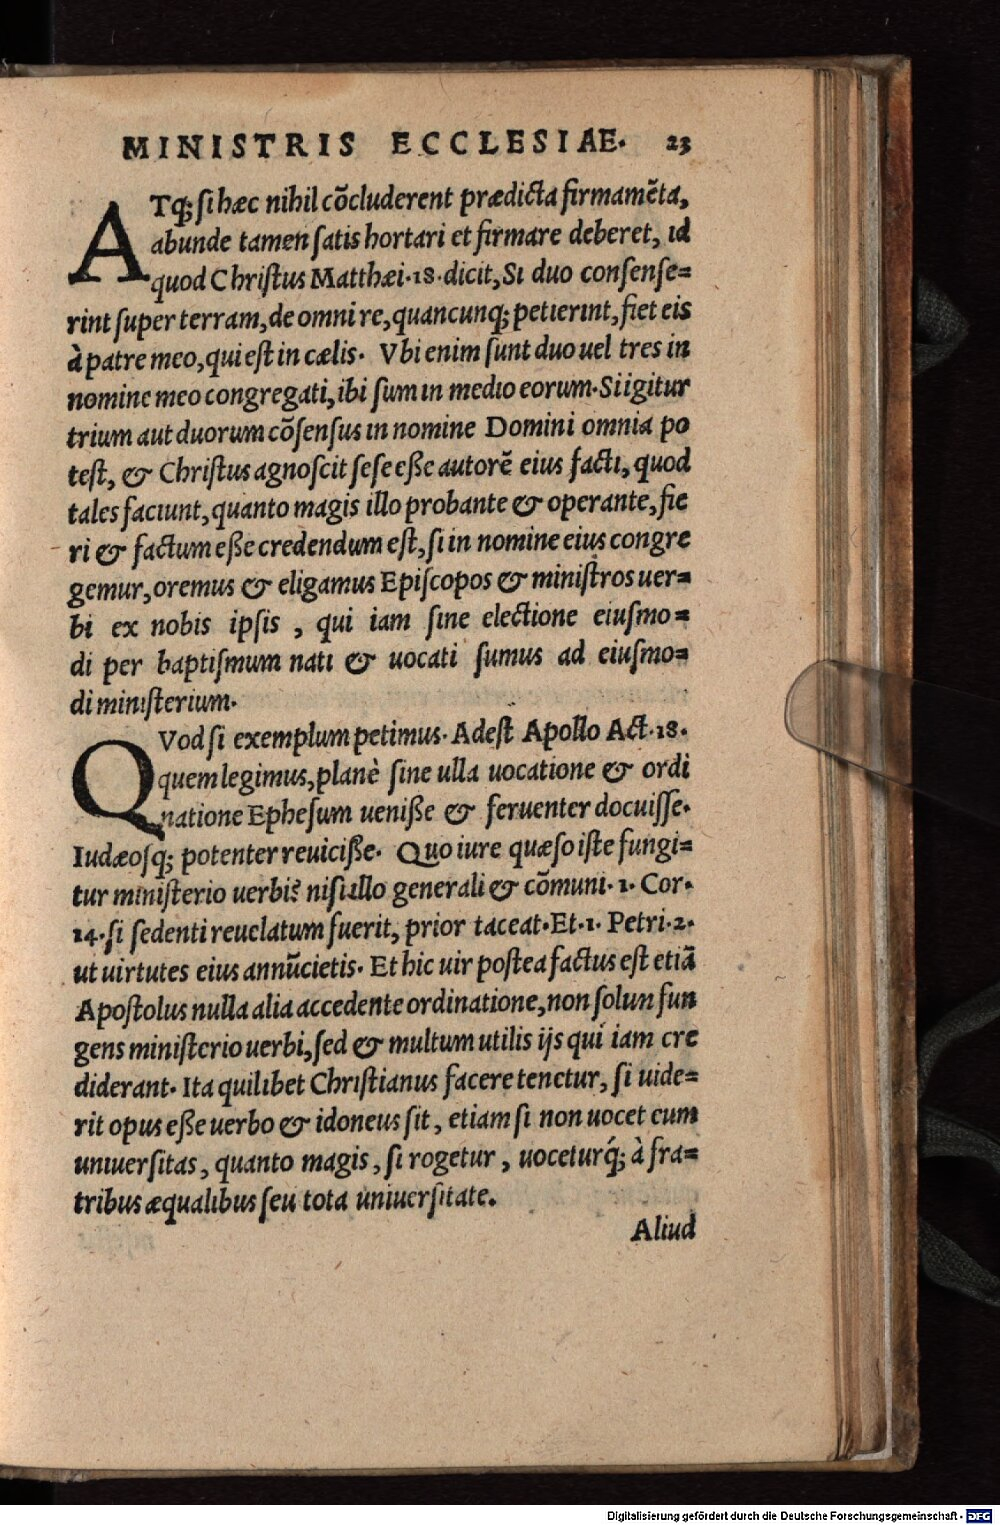 MINISTRIS ECCLESIAE. 23
ATq; ſi hæc nihil cõcluderent prædicta firmamẽta,
abunde tamen ſatis hortari et firmare deberet, id
quod Chriſtus Matthæi.18.dicit, Si duo conſenſe=
rint ſuper terram, de omni re, quancunq; petierint, fiet eis
à patre meo, qui eſt in cælis. Vbi enim ſunt duo uel tres in
nomine meo congregati, ibi ſum in medio eorum. Si igitur
trium aut duorum cõſenſus in nomine Domini omnia po
teſt, & Chriſtus agnoſcit ſeſe eſſe autorẽ eius facti, quod
tales faciunt, quanto magis illo probante & operante, fie
ri & factum eſſe credendum eſt, ſi in nomine eius congre
gemur, oremus & eligamus Epiſcopos & miniſtros uer=
bi ex nobis ipſis , qui iam ſine electione eiuſmo=
di per baptiſmum nati & uocati ſumus ad eiuſmo=
di miniſterium.
QVod ſi exemplum petimus. Adeſt Apollo Act.18.
quem legimus, planè ſine ulla uocatione & ordi
natione Epheſum ueniſſe & feruenter docuiſſe.
Iudæoſq; potenter reuiciſſe. Quo iure quæſo iſte fungi=
tur miniſterio uerbi? niſi illo generali & cõmuni. 1. Cor.
14. ſi ſedenti reuelatum fuerit, prior taceat. Et. 1. Petri. 2.
ut uirtutes eius annũcietis. Et hic uir poſtea factus eſt etiã
Apoſtolus nulla alia accedente ordinatione, non ſolun fun
gens miniſterio uerbi, ſed & multum utilis ijs qui iam cre
diderant. Ita quilibet Chriſtianus facere tenetur, ſi uide=
rit opus eſſe uerbo & idoneus ſit, etiam ſi non uocet eum
uniuerſitas, quanto magis, ſi rogetur, uoceturq́; à fra=
tribus æqualibus ſeu tota uniuerſitate.
Aliud
Digitalisierung gefördert durch die Deutsche Forschungsgemeinschaft - DFG